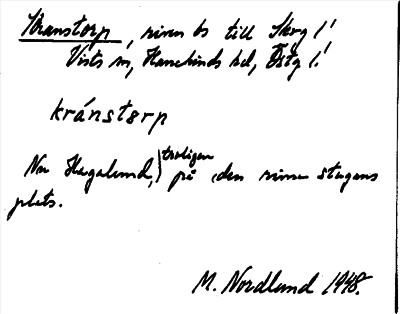 Kranstorp, riven bs till Skrg l!
Vists sn, Hanekinds hd, Östg l.!
kránstørp
Nu Hagalund, troligen på den rivna stugans
plats.
M. Nordlund 1948.